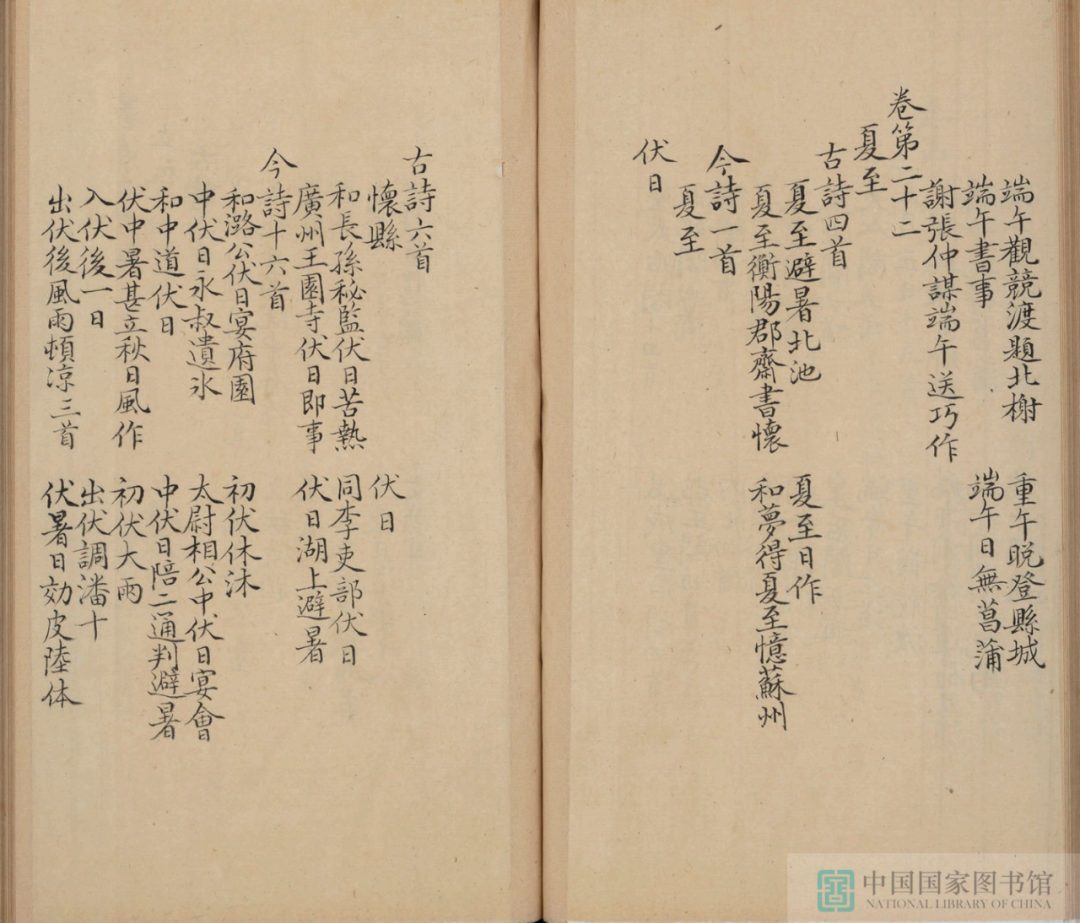 端午觀競渡題北榭　重午晚登縣城
端午書事　端午日無菖蒲
謝張仲謀端午送巧作
卷第二十二
夏至
古詩四首
夏至避暑北池　夏至日作
夏至衡陽郡齋書懷　和夢得夏至憶蘇州
今詩一首
夏至
伏日
古詩六首
懷縣　伏日
和長孫秘監伏日苦熱　同李吏部伏日
廣州王園寺伏日即事　伏日湖上避暑
今詩十六首
和潞公伏日宴府園　初伏休沐
中伏日永叔遺氷　太尉相公中伏日宴會
和中道伏日　中伏日陪二通判避暑
伏中暑甚立秋日風作　初伏大雨
入伏後一日　出伏調潘十
出伏後風雨頓凉三首　伏暑日効皮陸体
中国国家图书馆
NATIONAL LIBRARY OF CHINA